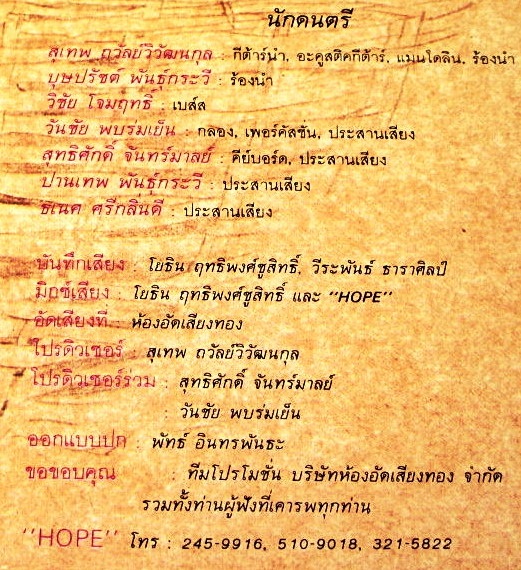 นักดนตรี
สุเทพ ถวัลย์วิวัฒนกุล : กีต้าร์นำ, อะคูสติคกีต้าร์, แมนโดลิน, ร้องนำ
บุษปรัชต์ พันธุ์กระวี : ร้องนำ
วิชัย โจมฤทธิ์ : เบส์ส
วันชัย พบร่มเย็น : กลอง, เพอร์คัสชั่น, ประสานเสียง
สุทธิศักดิ์ จันทร์มาลย์ : คีย์บอร์ด, ประสานเสียง
ปานเทพ พันธุ์กระวี : ประสานเสียง
ธเนศ ศรีกลินดี : ประสานเสียง
บันทึกเสียง : โยธิน ฤทธิพงศ์ชูสิทธิ์, วีระพันธ์ ธาราศิลป์
มิกซ์เสียง : โยธิน ฤทธิพงศ์ชูสิทธิ์ และ "HOPE"
อัดเสียงที่ : ห้องอัดเสียงทอง
โปรดิวเซอร์ : สุเทพ ถวัลย์วิวัฒนกุล
โปรดิวเซอร์ร่วม : สุทธิศักดิ์ จันทร์มาลย์
: วันชัย พบร่มเย็น
ออกแบบปก : พัทธ์ อินทรพันธะ
ขอขอบคุณ : ทีมโปรโมชั่น บริษัทห้องอัดเสียงทอง จำกัด
รวมทั้งท่านผู้ฟังที่เคารพทุกท่าน
"HOPE" โทร : 245-9916, 510-9018, 321-5822